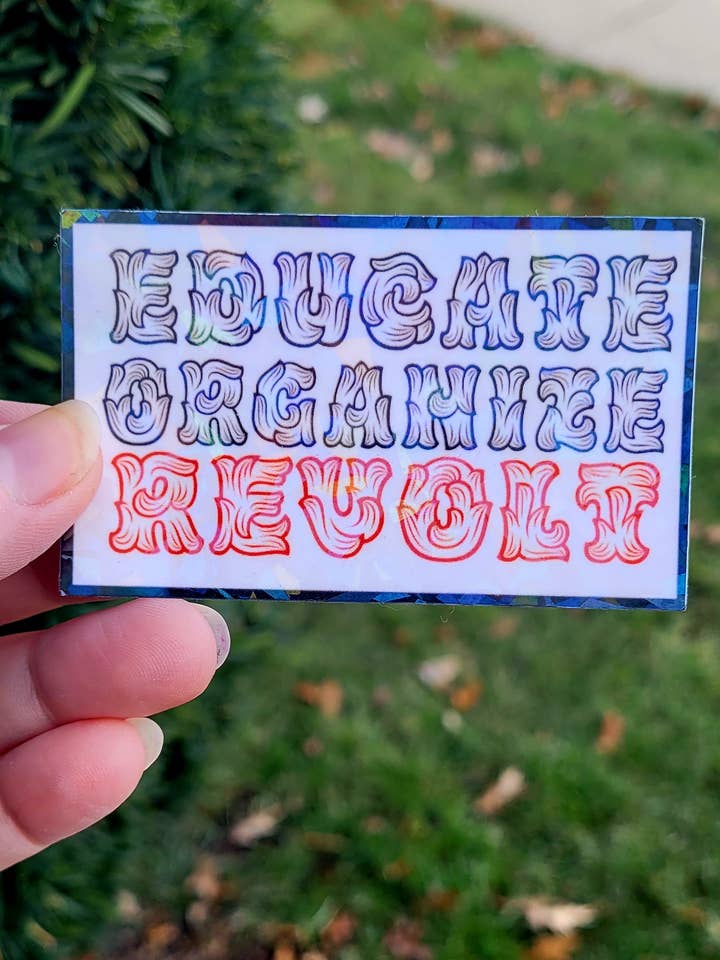 EDUCATE
ORGANIZE
REVOLT